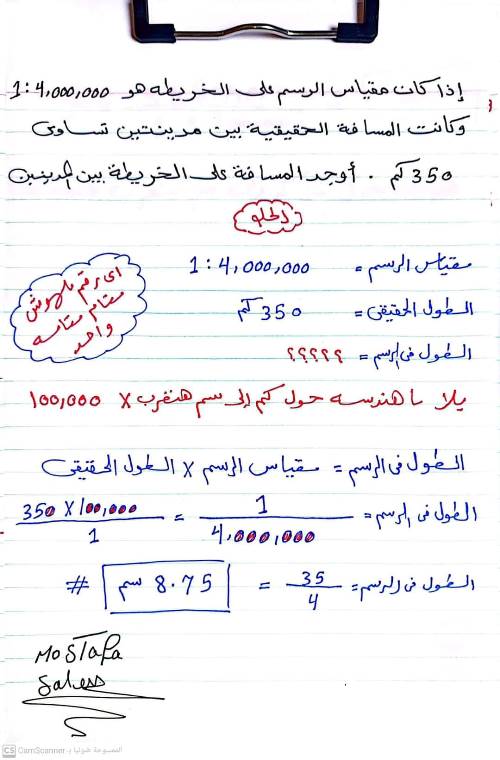 إذا كان مقياس الرسم على الخريطه هو 1:4,000,000
وكانت المسافة الحقيقية بين مدينتين تساوى
350 كم . أوجد المسافة على الخريطة بين المدينتين
الحلو
مقياس الرسم = 1:4,000,000
الطول الحقيقى = 350 كم
الطول فى الرسم = ؟؟؟؟؟
اى رقم ملهوش
مقام مقامه
واحد
يلا يا هندسه حول كم إلى سم هنضرب X 100,000
الطول فى الرسم = مقياس الرسم X الطول الحقيقى
الطول فى الرسم = 1/4,000,000 = 350 X 100,000/1
الطول فى الرسم = 35/4 = 8.75 سم #
MOSTAFA
CS CamScanner الممسوحة ضوئيا بـ